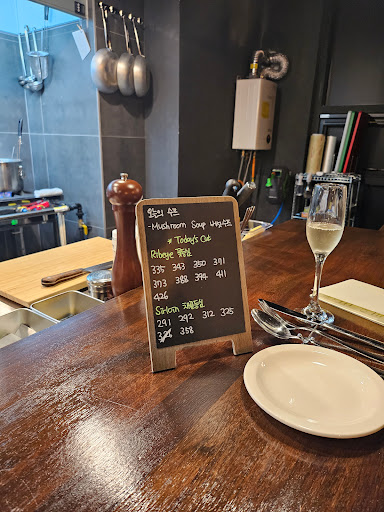 오늘의 수프
-Mushroom Soup 버섯수프
* Today's Cut
Ribeye 꽃등심
335 343 350 371
373 388 394 411
426
Sirloin 채끝등심
291 292 312 325
358